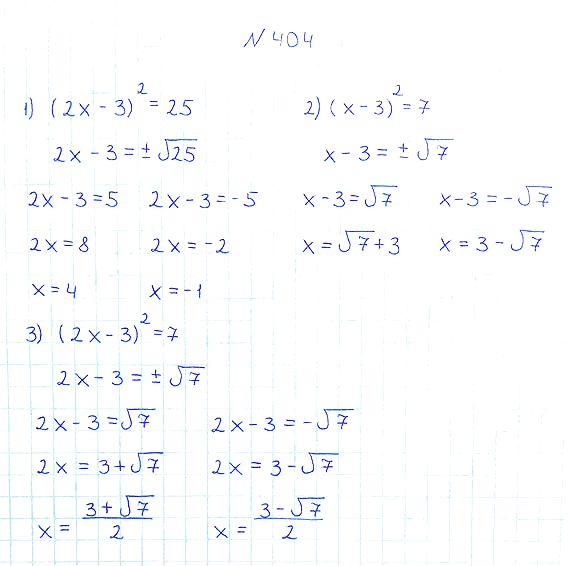 № 404
1) (2x - 3)² = 25
2x - 3 = ± √25
2x - 3 = 5    2x - 3 = - 5
2x = 8    2x = -2
x = 4    x = -1
2) (x - 3)² = 7
x - 3 = ± √7
x - 3 = √7    x - 3 = - √7
x = √7 + 3    x = 3 - √7
3) (2x - 3)² = 7
2x - 3 = ± √7
2x - 3 = √7    2x - 3 = - √7
2x = 3 + √7    2x = 3 - √7
x = (3 + √7)/2    x = (3 - √7)/2